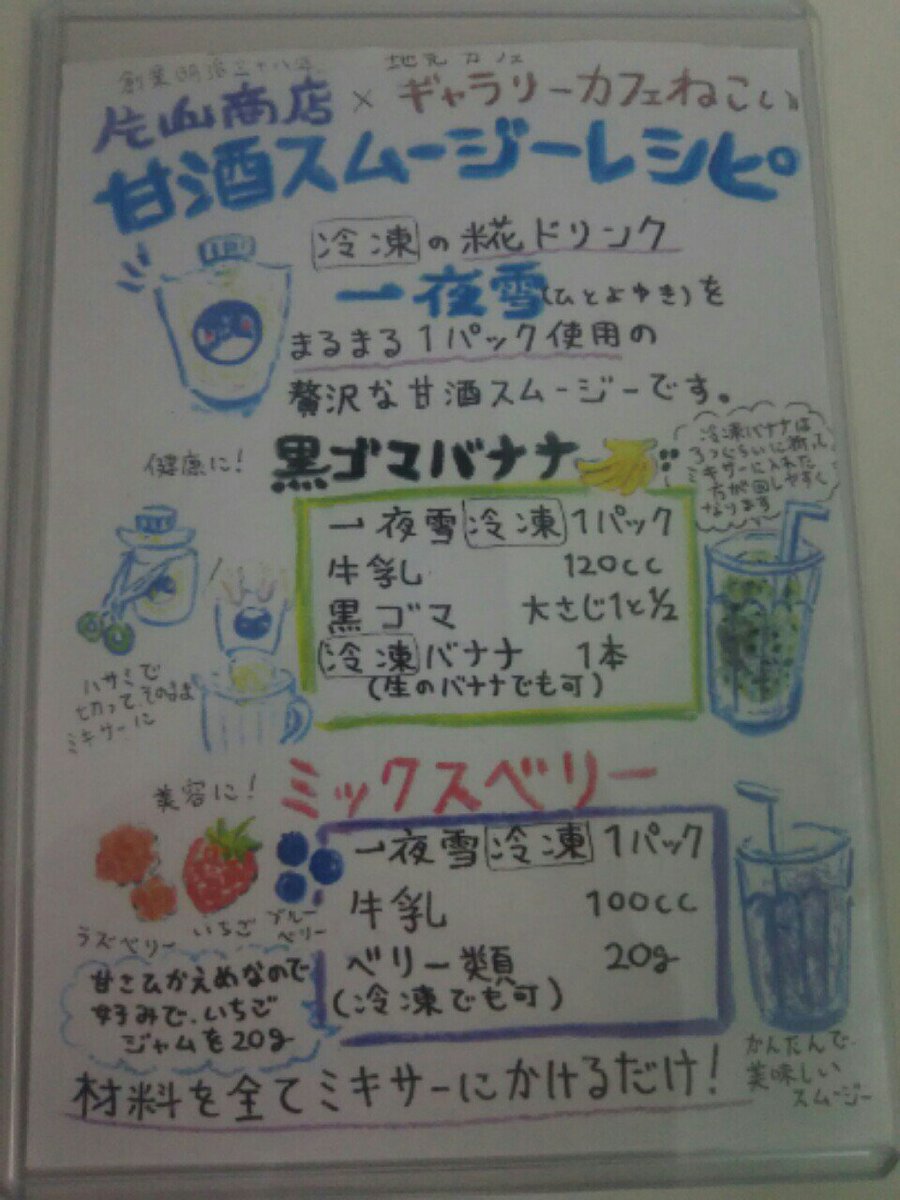 創業明治三十八年
地元カフェ
片山商店×ギャラリーカフェねこい
甘酒スムージーレシピ
冷凍の糀ドリンク
一夜雪(ひとよゆき)を
まるまる1パック使用の
贅沢な甘酒スムージーです。
健康に!
黒ゴマバナナ
冷凍バナナは
3つぐらいに折って
ミキサーに入れた
方が回しやすく
なります
一夜雪冷凍1パック
牛乳 120cc
黒ゴマ 大さじ1と1/2
冷凍バナナ 1本
(生のバナナでも可)
ハサミで
切って、そのまま
ミキサーに
美容に!
ミックスベリー
一夜雪冷凍1パック
牛乳 100cc
ベリー類 20g
(冷凍でも可)
ラズベリー
いちご
ブルー
ベリー
甘さひかえめなので
好みで、いちご
ジャムを20g
かんたんで、
美味しい
スムージー
材料を全てミキサーにかけるだけ!